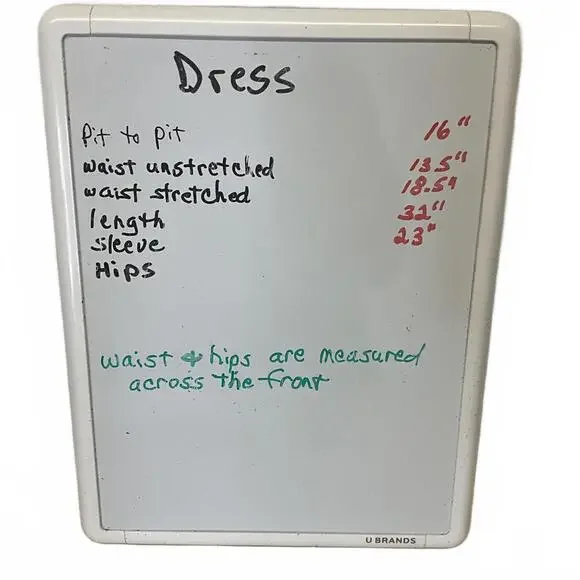 Dress
Pit to pit 16"
waist unstretched 13.5"
waist stretched 18.5"
length 32"
sleeve 23"
Hips
waist + hips are measured
across the front
U BRANDS